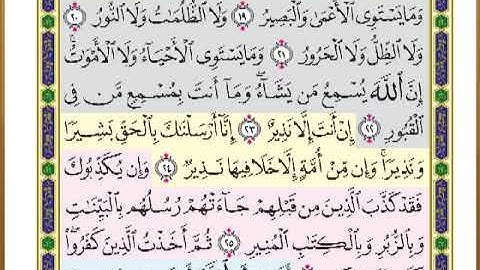 وَمَا يَسْتَوِى ٱلْأَعْمَىٰ وَٱلْبَصِيرُ ١٩ وَلَا ٱلظُّلُمَٰتُ وَلَا ٱلنُّورُ ٢٠
وَلَا ٱلظِّلُّ وَلَا ٱلْحَرُورُ ٢١ وَمَا يَسْتَوِى ٱلْأَحْيَآءُ وَلَا ٱلْأَمْوَٰتُ ۚ
إِنَّ ٱللَّهَ يُسْمِعُ مَن يَشَآءُ ۖ وَمَآ أَنتَ بِمُسْمِعٍ مَّن فِى
ٱلْقُبُورِ ٢٢ إِنْ أَنتَ إِلَّا نَذِيرٌ ٢٣ إِنَّآ أَرْسَلْنَٰكَ بِٱلْحَقِّ بَشِيرًا
وَنَذِيرًا ۚ وَإِن مِّنْ أُمَّةٍ إِلَّا خَلَا فِيهَا نَذِيرٌ ٢٤ وَإِن يُكَذِّبُوكَ
فَقَدْ كَذَّبَ ٱلَّذِينَ مِن قَبْلِهِمْ جَآءَتْهُمْ رُسُلُهُم بِٱلْبَيِّنَٰتِ
وَبِٱلزُّبُرِ وَبِٱلْكِتَٰبِ ٱلْمُنِيرِ ٢٥ ثُمَّ أَخَذْتُ ٱلَّذِينَ كَفَرُوا۟ ۖ